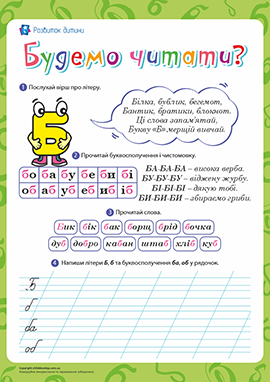 Розвиток дитини
Будемо читати?
1 Послухай вірш про літеру.
Білка, бублик, бегемот,
Бантик, братики, блокнот.
Ці слова запам'ятай,
Букву «Б» мерщій вивчай.
Б
2 Прочитай буквосполучення і чистомовку.
бо ба бу бе би бі
об аб уб еб иб іб
БА-БА-БА – висока верба.
БУ-БУ-БУ – віджену журбу.
БІ-БІ-БІ – дякую тобі.
БИ-БИ-БИ – збираємо гриби.
3 Прочитай слова.
Бик бік бак борщ брід бочка
дуб добро кабан штаб хліб куб
4 Напиши літери Б, б та буквосполучення ба, об у рядочок.
Б
б
ба
об